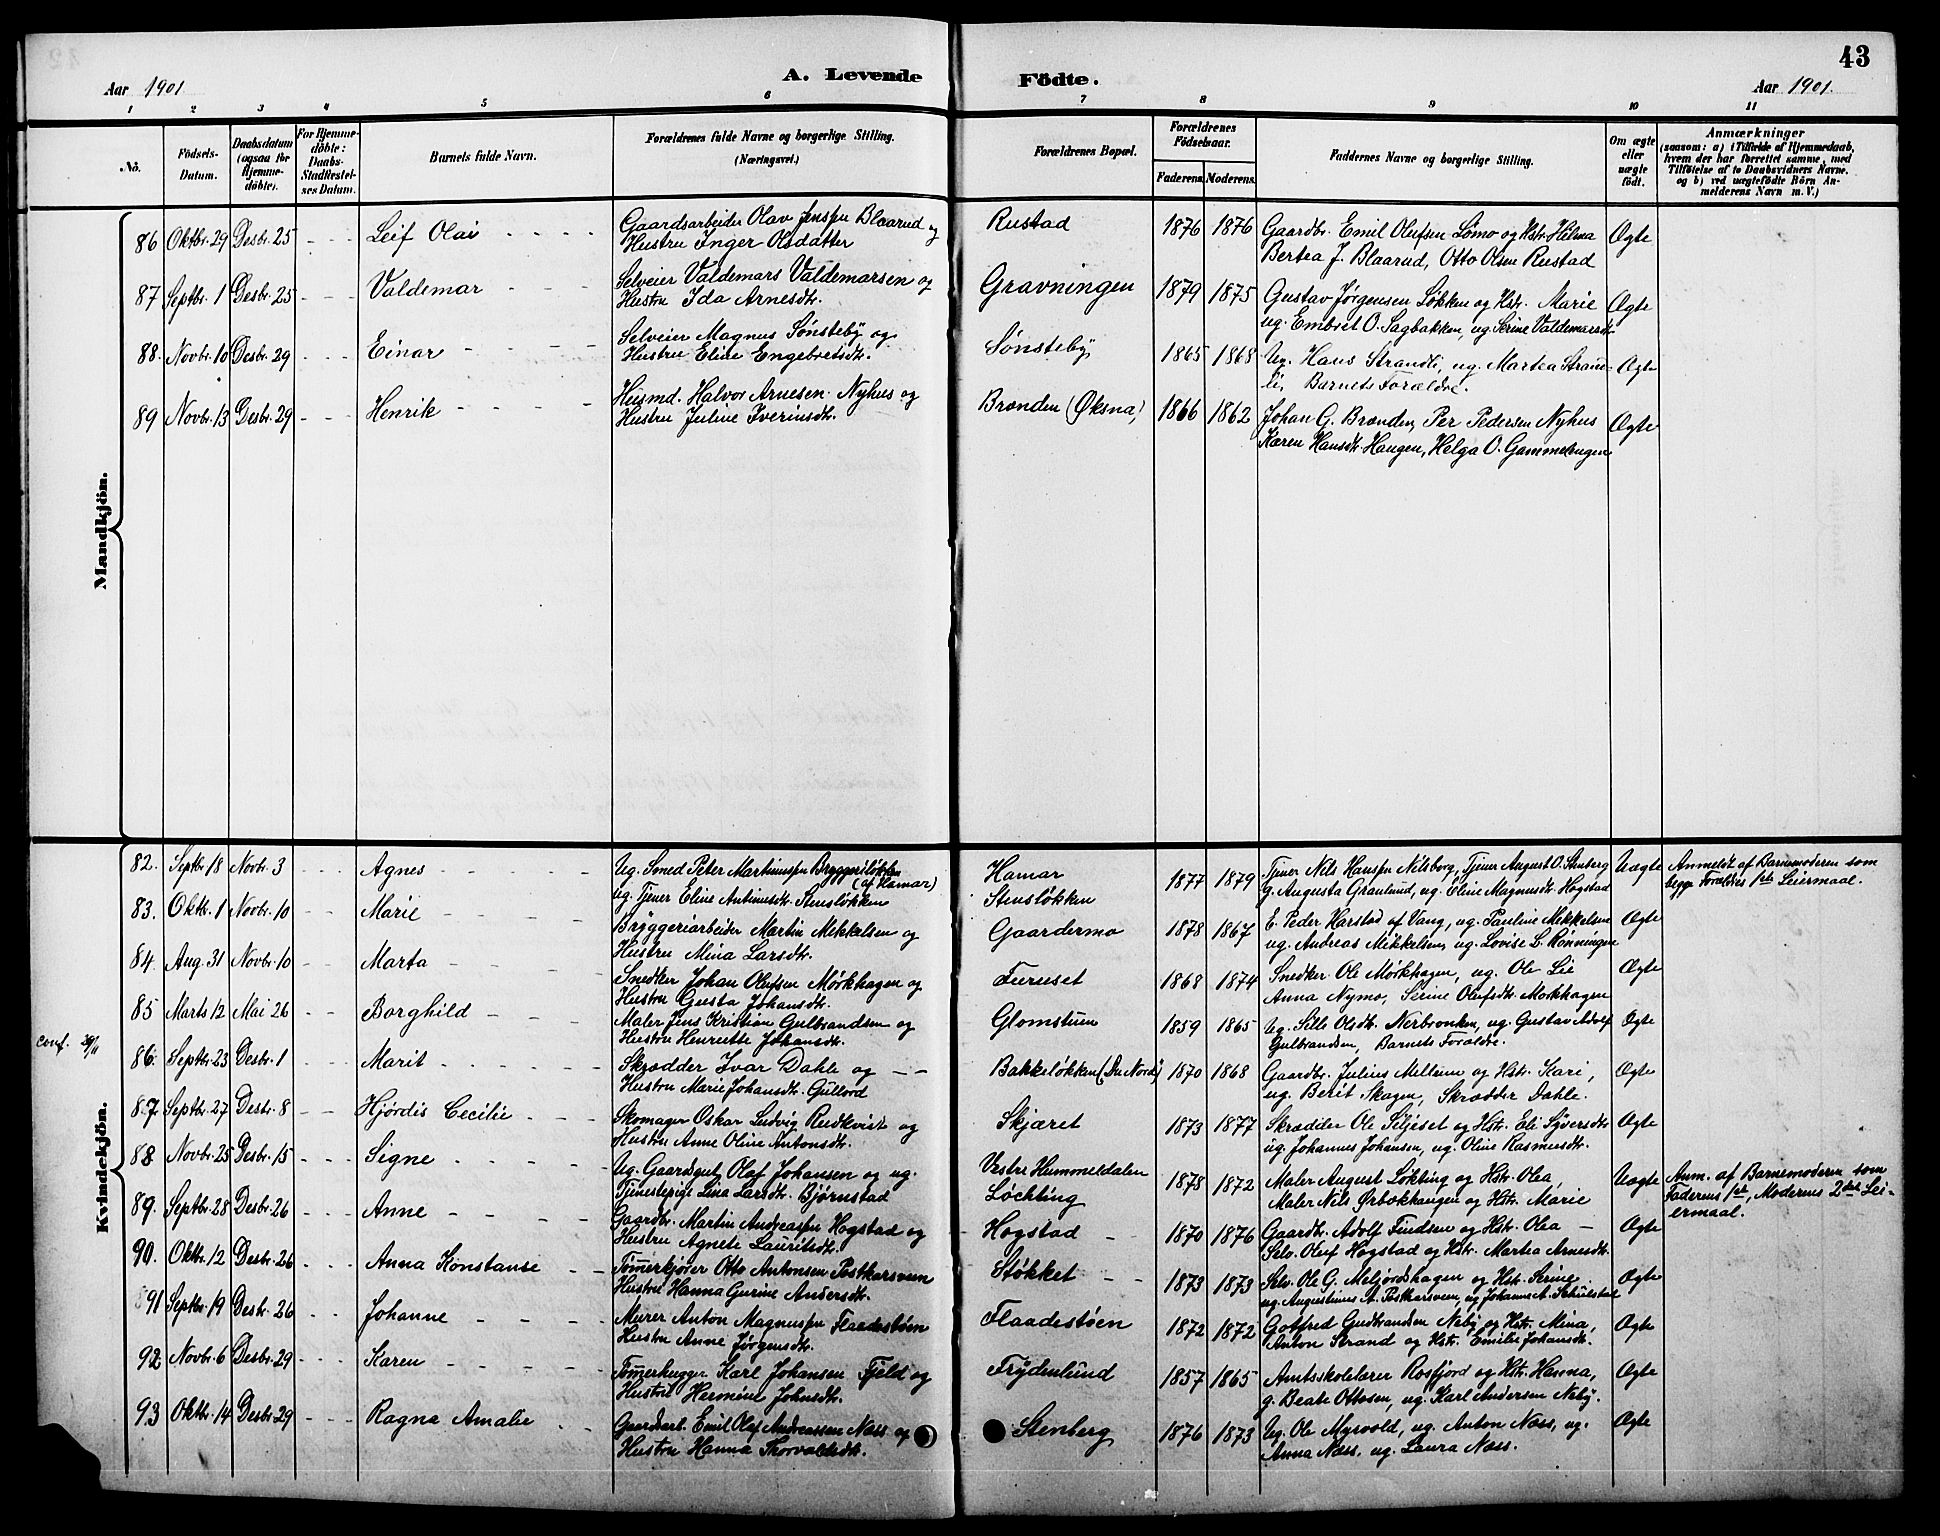 43
A. Levende Födte.
Aar 1901
Aar 1901.
1 2 3 4 5 6 7 8 9 10 11
Nō. Födsels-Datum. Daabsdatum (ogsaa for Hjemme-döbte). For Hjemme-döbte: Daabs-Stadfæstel-ses Datum. Barnets fulde Navn. Forældrenes fulde Navne og borgerlige Stilling. (Næringsvei.) Forældrenes Bopæl. Forældrenes Födselsaar. Faderens Moderens. Faddernes Navne og borgerlige Stilling. Om ægte eller uægte født. Anmærkninger (saasom: a) i Tilfælde af Hjemmedaab, hvem der har forrettet samme, med Tilföielse af to Daabsvidners Navne, og b) ved uægtefödte Börn An-melderens Navn m. V.)
Mandkjön.
86 Oktbr. 29 Desbr. 25 - - - Leif Olai - - - - Gaardsarbeider Olav Jenssen Blaarud og Rustad 1876 1876 Gaardbr. Emil Olufsen Lømo og Hstr. Helma Ægte
Hustru Inger Olsdatter Bertea J. Blaarud, Otto Olsen Rustad
87 Septbr. 1 Desbr. 25 - - - Valdemar - - - Selveier Valdemars Valdemarsen og Gravningen 1879 1875 Gustav Jørgensen Løkken og Hstr. Marie Ægte
Hustru Ida Arnesdtr. ug. Embret O. Sagbakken, ug. Serine Valdemarsdtr.
88. Novbr. 10 Desbr. 29 - - - Einar - - - - Selveier Magnus Sønsteby og Sønsteby 1865 1868 Ug. Hans Strandli, ug. Martea Strand- Ægte
Hustru Eline Engebretsdtr. li, Barnets Forældre.
89 Novbr. 13 Desbr. 29 - - - Henrik - - - - Husmd. Halvor Arnesen Nyhus og Brænden (Øksna) 1866 1862 Johan G. Brænden, Per Pedersen Nyhus Ægte
Hustru Juline Iverinsdtr. Karen Hansdtr. Haugen, Helga O. Gammelengen
Kvindekjön.
82. Septbr 18 Novbr. 3 - - - Agnes - - - - Ug. Smed Peter Martinussen Bryggeriløkken (af Hamar) Hamar 1877 1879 Tjener Nils Hanssen Nilsborg, Tjener August O. Stenberg Uægte Anmeldt af Barnemoderen som
ug. Tjener Eline Antinusdtr. Stensløkken Stensløkken g. Augusta Granlund, ug. Eline Magnusdtr. Hogstad begge Forældres 1ste Leiermaal.
83. Oktbr. 1 Novbr. 10 - - Marie - - - - Bryggeriarbeider Martin Mekkelsen og Gaardermo 1878 1867 E. Peder Harstad af Vang, ug. Pauline Mekkelsen Ægte
Hustru Mina Larsdtr. ug. Andreas Mekkelsen, ug. Lovise L. Rønningen
84. Aug. 31 Novbr. 10 - - Marta - - - - Snedker Johan Olufsen Mørkhagen og Furuset 1868 1874 Snedker Ole Mørkhagen, ug. Ole Lie Ægte
Hustru Gusta Johansdtr. Anna Nymo, Serine Olufsdtr. Mørkhagen
85 Marts 12 Mai 26 - - Borghild - - - Maler Jens Kristian Gulbrandsen og Glomstuen 1859 1865 Ug. Sille Olsdtr. Nerbronken, ug. Gustav Adolf Ægte
Hustru Henriette Johansdtr. Gulbrandsen, Barnets Forældre.
conf. 29/11
86. Septbr. 23 Desbr. 1 - - Marit - - - - - Skrædder Ivar Dahle og - - Bakkeløkken (Du Nord) 1870 1868 Gaardbr. Julius Mellum og Hstr. Kari, Ægte
Hustru Marie Johansdtr. Gullord ug. Berit Skagen, Skrædder Dahle.
87 Septbr. 27 Desbr. 8 - - Hjørdis Cecilie - - - Skomager Oskar Ludvig Rudkvist og Skjæret 1873 1877 Skrædder Ole Siljeset og Hstr. Eli Syversdtr. Ægte
Hustru Anne Oline Antonsdtr. ug. Johannes Johansen, ug. Oline Rasmusdtr.
88 Novbr. 25 Desbr. 15 - - - Signe - - - - Ug. Gaardsgut Olaf Johansen og ug. Vestre Hummeldalen 1878 1872 Maler August Løkting og Hstr. Olea, Uægte Anm. af Barnemoderen som
Tjenestepige Lina Larsdtr. Bjørnstad Løchting Maler Nils Ørbækhaugen og Hstr. Marie Faderens 1ste, Moderens 2det Lei-
ermaal.
89. Septbr. 28 Desbr. 26 - - - Anne - - - - Gaardbr. Martin Andreassen Hogstad og Hogstad - 1870 1876 Gaardbr. Adolf Findsen og Hstr. Olea - Ægte
Hustru Agnete Lauritsdtr. Selv. Oluf Hogstad og Hstr. Martea Arnesdtr.
90. Oktbr. 12 Desbr. 26 - - - Anna Konstanse - - Tømmerkjører Otto Antonsen Postkarsveen Støkket - - 1873 1873 Selv. Ole G. Meljordshagen og Hstr. Serine Ægte
Hustru Hanna Gurine Andersdtr. ug. Augustinus A. Postkarsveen, ug. Johanne A.
91 Septbr. 19 Desbr. 26 - - Johanne - - - - Murer Anton Magnussen Flaadestøen Flaadestøen 1872 1872 Gotfred Gudbrandsen Neby og Hstr. Mina, Ægte
Hustru Anne Jørgensdtr. Anton Strand og Hstr. Emilie Johansdtr.
92 Novbr. 6 Desbr. 29 - - - Karen - - - - Tømmerhugger Karl Johansen Fjeld og Frydenlund 1857 1865 Amtsskolelærer Rosfjord og Hstr. Hanna, Ægte
Hustru Hermine Johnsdtr. g. Beate Ottosen, ug. Karl Andersen Neby.
93 Oktbr. 14 Desbr. 29 - - - Ragna Amalie - Gaardsarb. Emil Olaf Andreassen Næss og Stenberg 1876 1873 Ug. Ole Myrvold, ug. Anton Næss, ug. Ægte
Hustru Hanna Thorvaldsdtr. Anna Næss, ug. Laura Næss.